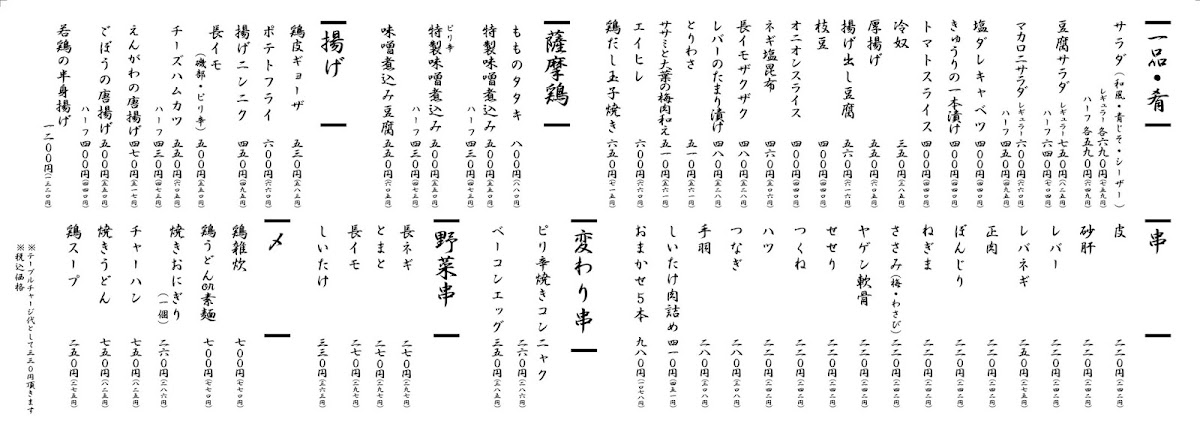 一品・肴
サラダ（和風・青じそ・シーザー）
レギュラー 各六九〇円（七五九円）
ハーフ 各五九〇円（六四九円）
豆腐サラダ レギュラー 七五〇円（八二五円）
ハーフ 六四〇円（七〇四円）
マカロニサラダ レギュラー 六〇〇円（六六〇円）
ハーフ 四五〇円（四九五円）
塩ダレキャベツ 四〇〇円（四四〇円）
きゅうりの一本漬け 四〇〇円（四四〇円）
トマトスライス 四〇〇円（四四〇円）
冷奴 三五〇円（三八五円）
厚揚げ 五五〇円（六〇五円）
揚げ出し豆腐 五六〇円（六一六円）
枝豆 四〇〇円（四四〇円）
オニオンスライス 四〇〇円（四四〇円）
ネギ塩昆布 四六〇円（五〇六円）
長イモザクザク 四八〇円（五二八円）
レバーのたまり漬け 四八〇円（五二八円）
とりわさ 五一〇円（五六一円）
ササミと大葉の梅肉和え 五一〇円（五六一円）
エイヒレ 六〇〇円（六六〇円）
鶏だし玉子焼き 六五〇円（七一五円）
薩摩鶏
もものタタキ 八〇〇円（八八〇円）
特製味噌煮込み 五〇〇円（五五〇円）
ハーフ 四三〇円（四七三円）
ピリ辛
特製味噌煮込み 五〇〇円（五五〇円）
ハーフ 四三〇円（四七三円）
味噌煮込み豆腐 五五〇円（六〇五円）
揚げ
鶏皮ギョーザ 五三〇円（五八三円）
ポテトフライ 六〇〇円（六六〇円）
揚げニンニク 四五〇円（四九五円）
長イモ
（磯部・ピリ辛） 五〇〇円（五五〇円）
チーズハムカツ 五五〇円（六〇五円）
ハーフ 四三〇円（四七三円）
えんがわの唐揚げ 四七〇円（五一七円）
ごぼうの唐揚げ 五〇〇円（五五〇円）
ハーフ 四〇〇円（四四〇円）
若鶏の半身揚げ
一二〇〇円（一三二〇円）
串
皮 二二〇円（二四二円）
砂肝 二二〇円（二四二円）
レバー 二二〇円（二四二円）
レバネギ 二五〇円（二七五円）
正肉 二二〇円（二四二円）
ぼんじり 二二〇円（二四二円）
ねぎま 二二〇円（二四二円）
ささみ（梅・わさび） 二二〇円（二四二円）
ヤゲン軟骨 二二〇円（二四二円）
せせり 二二〇円（二四二円）
つくね 二二〇円（二四二円）
ハツ 二二〇円（二四二円）
つなぎ 二八〇円（三〇八円）
手羽 二八〇円（三〇八円）
しいたけ肉詰め 四一〇円（四五一円）
おまかせ5本 九八〇円（一〇七八円）
変わり串
ピリ辛焼きコンニャク
二六〇円（二八六円）
ベーコンエッグ 三五〇円（三八五円）
野菜串
長ネギ 二七〇円（二九七円）
とまと 二七〇円（二九七円）
長イモ 二七〇円（二九七円）
しいたけ 三三〇円（三六三円）
〆
鶏雑炊 七〇〇円（七七〇円）
鶏うどんor素麺 七〇〇円（七七〇円）
焼きおにぎり
（一個） 二六〇円（二八六円）
チャーハン 七五〇円（八二五円）
焼きうどん 七五〇円（八二五円）
鶏スープ 二五〇円（二七五円）
※テーブルチャージ代として三三〇円頂きます
※税込価格